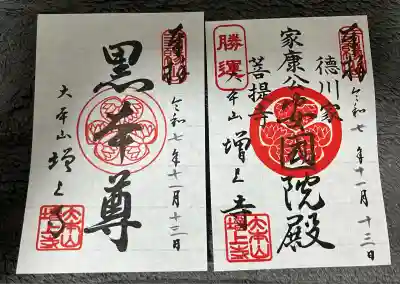 奉拝
黒本尊
令和七年十一月十三日
大本山 増上寺
大本山増上寺
奉拝
勝運
徳川家
家康公
安国院殿
菩提寺
令和七年十一月十三日
大本山 増上寺
大本山増上寺